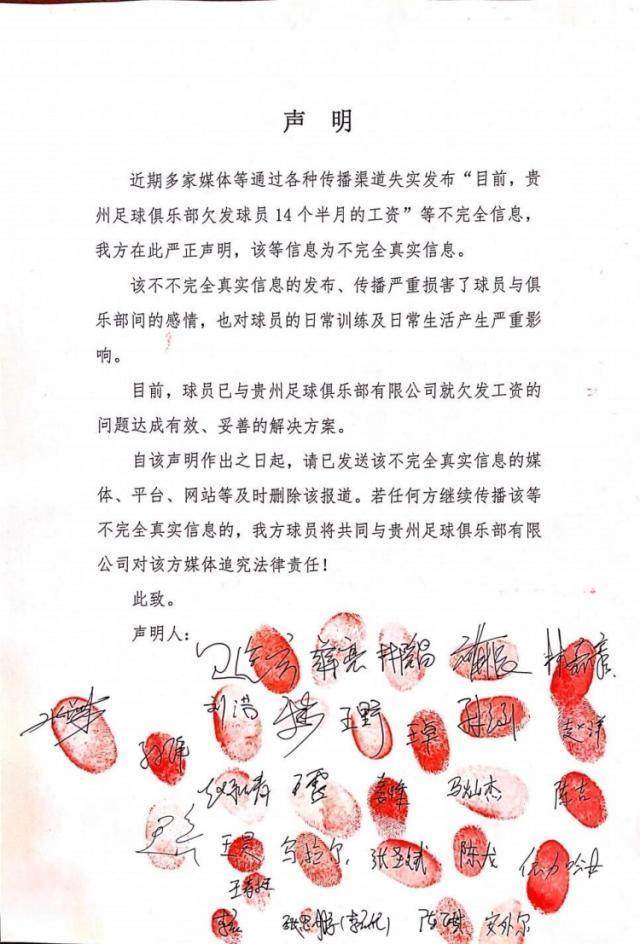 声 明
近期多家媒体等通过各种传播渠道失实发布“目前，贵
州足球俱乐部欠发球员14个半月的工资”等不完全信息，
我方在此严正声明，该等信息为不完全真实信息。
该不不完全真实信息的发布、传播严重损害了球员与俱
乐部间的感情，也对球员的日常训练及日常生活产生严重影
响。
目前，球员已与贵州足球俱乐部有限公司就欠发工资的
问题达成有效、妥善的解决方案。
自该声明作出之日起，请已发送该不完全真实信息的媒
体、平台、网站等及时删除该报道。若任何方继续传播该等
不完全真实信息的，我方球员将共同与贵州足球俱乐部有限
公司对该方媒体追究法律责任！
此致。
声明人：
刘浩 王野
王昊 乌拉尔 陈龙
安外尔